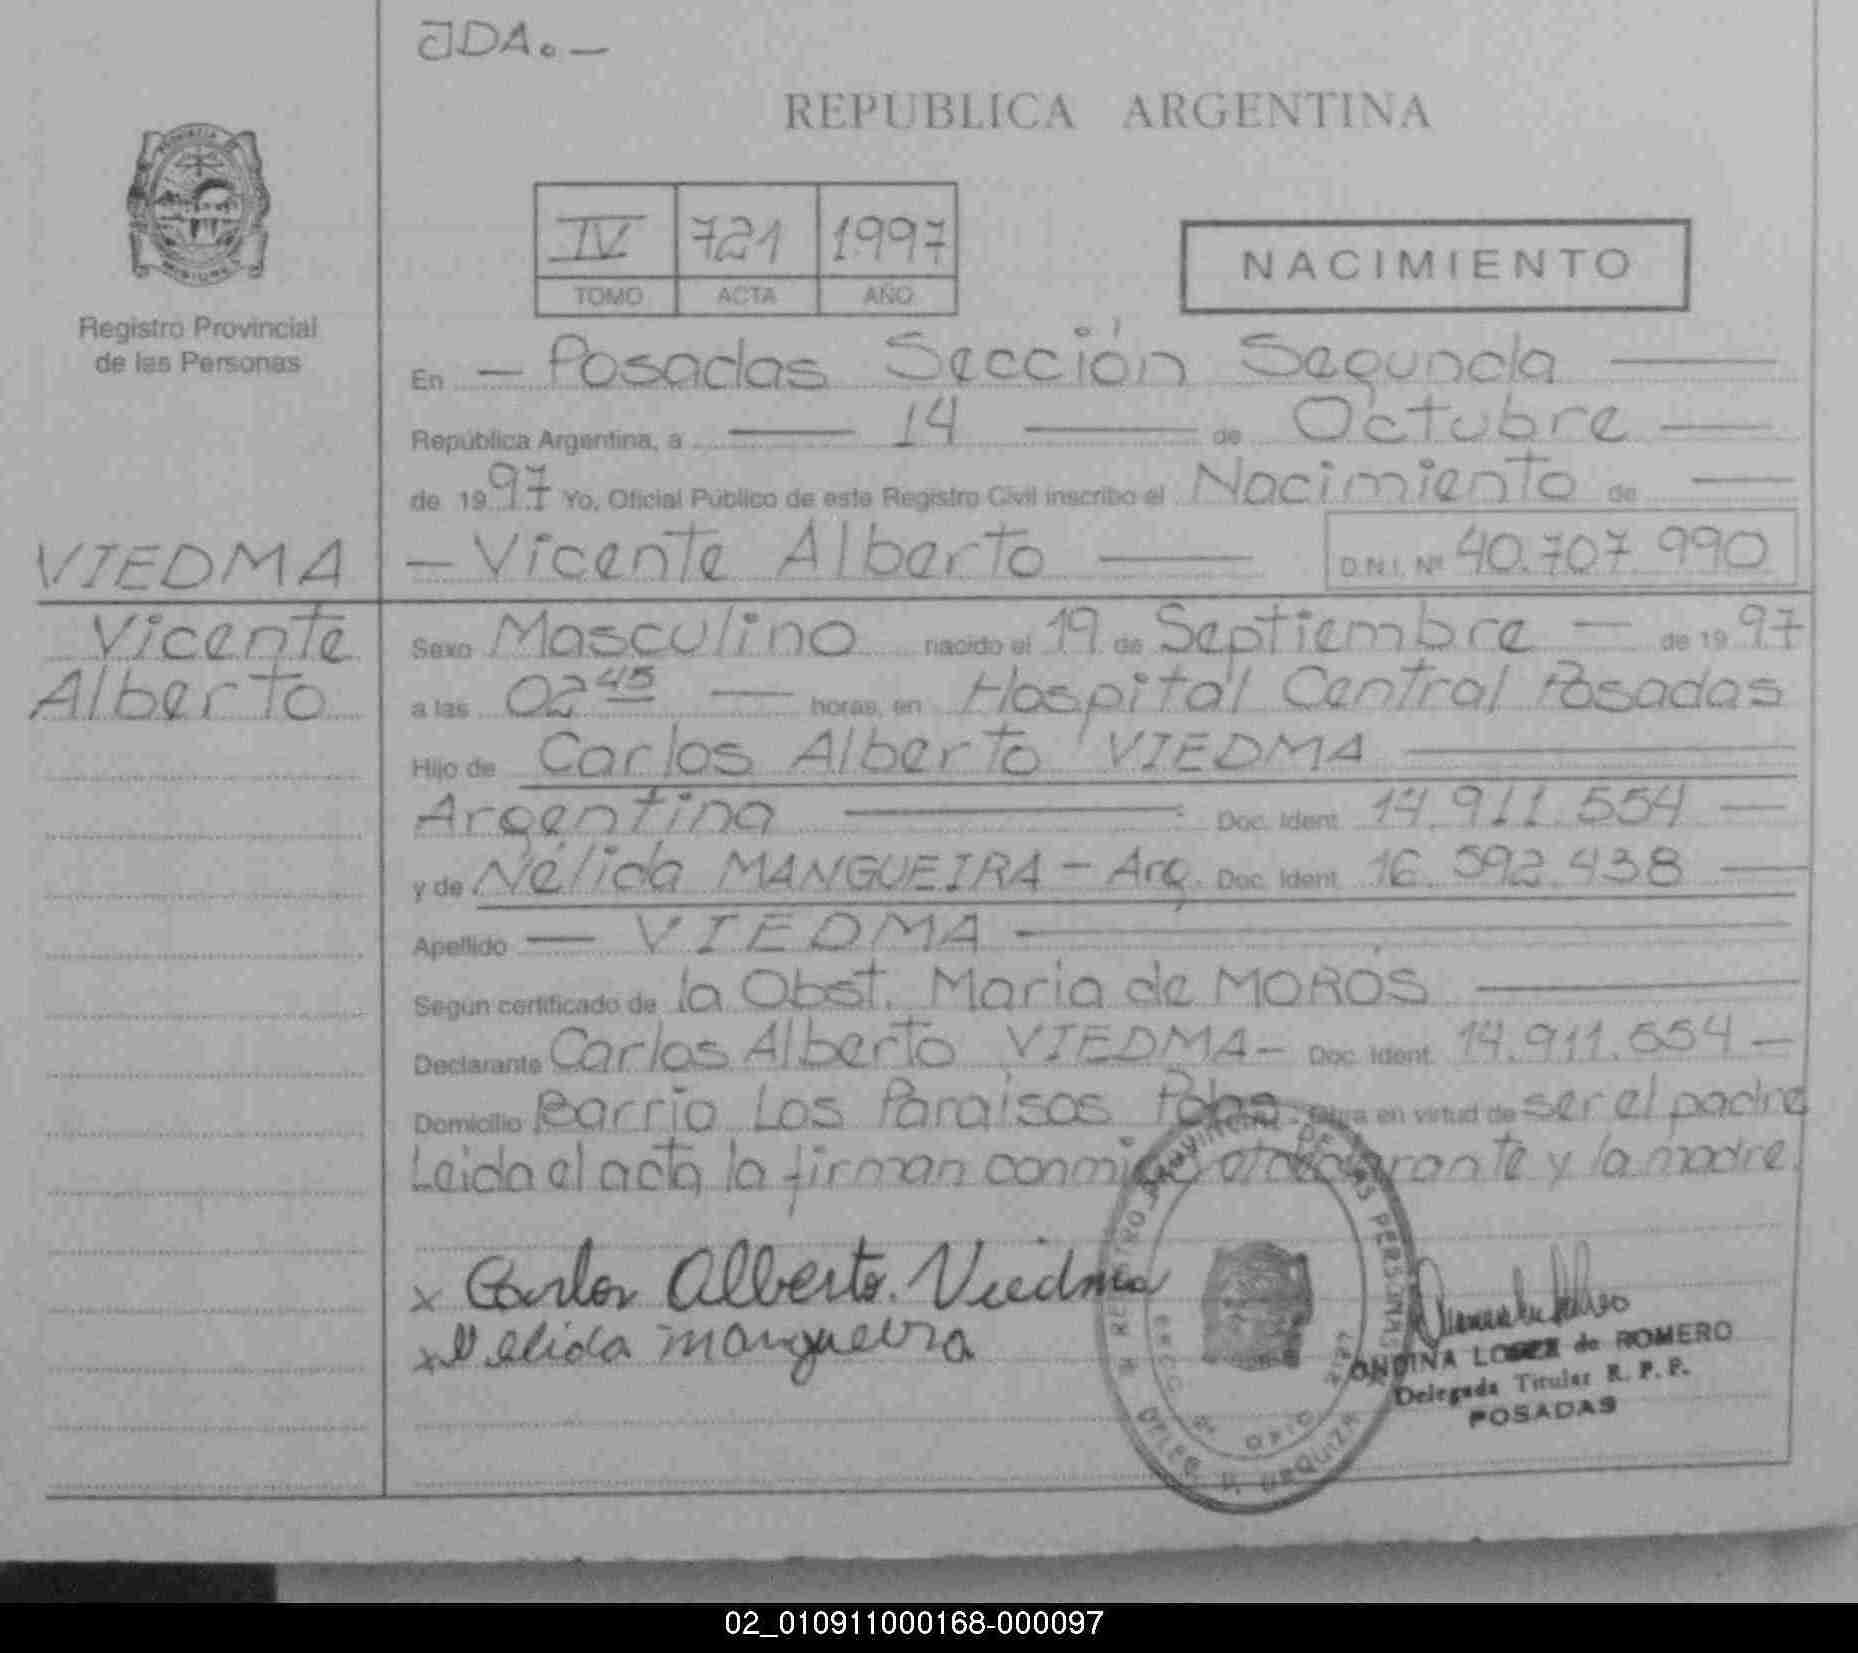 JDA.-
REPUBLICA ARGENTINA
IV 721 1997
TOMO ACTA AÑO
NACIMIENTO
Registro Provincial
de las Personas
En - Posadas Sección Segunda
República Argentina, a 14 de Octubre
de 1997 Yo, Oficial Público de este Registro Civil inscribo el Nacimiento de
VIEDMA
- Vicente Alberto D.N.I. Nº 40.707.990
Vicente
Alberto
Sexo Masculino nacido el 19 de Septiembre - de 1997
a las 02 45 horas, en Hospital Central Posadas
Hijo de Carlos Alberto VIEDMA
Argentina Doc. Ident. 14.911.554 -
y de Nélida MANGUEIRA - Arg. Doc. Ident. 16.592.438
Apellido - VIEDMA
Según certificado de la Obst. Maria de MORÓS
Declarante Carlos Alberto VIEDMA - Doc. Ident. 14.911.554 -
Domicilio Barrio Los Paraisos en virtud de ser el padre
Leida el acta la firman conmigo el declarante y la madre.
x Carlos Alberto Viedma
x Nelida mangueira
REGISTRO PROVINCIAL DE LAS PERSONAS
URQUIZA
ONDINA LOPEZ de ROMERO
Delegada Titular R. P. P.
POSADAS
02_010911000168-000097